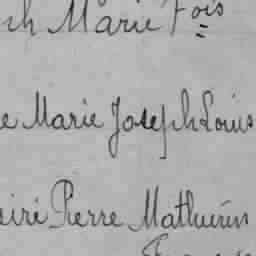 Marie Fois
Marie Joseph Louis
Pierre Mathurin